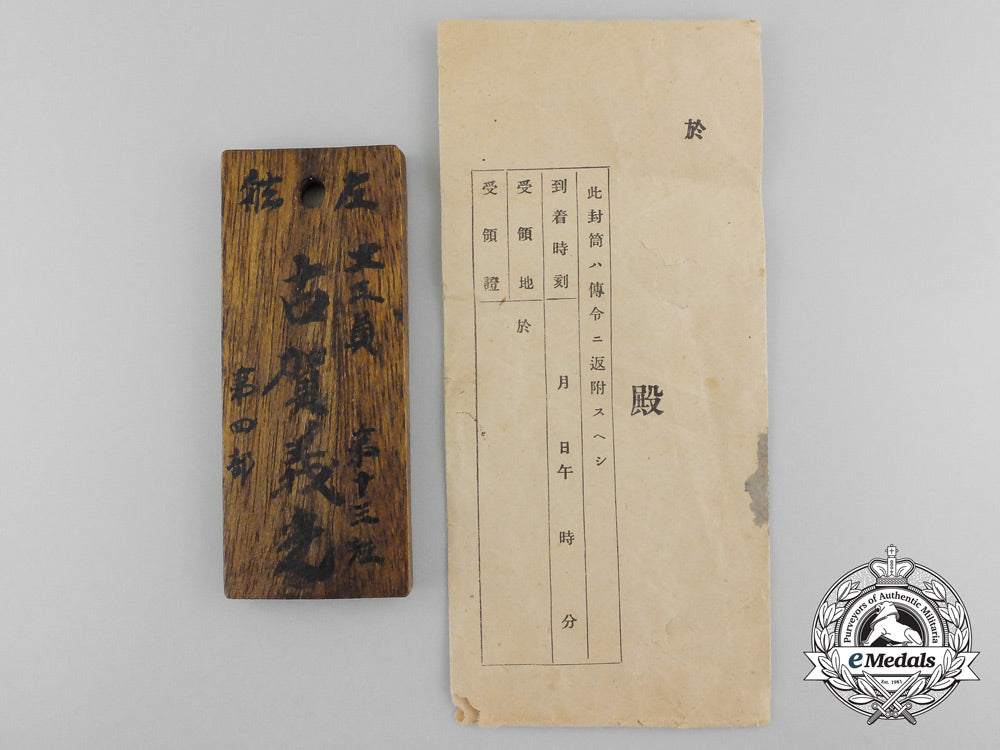 左舷
工員 第十三組
古賀義光
第四部
於
殿
此封筒ハ傳令ニ返附スヘシ
到着時刻 月 日午 時 分
受領地 於
受領證
Purveyors of Authentic Militaria
eMedals
Est. 1981